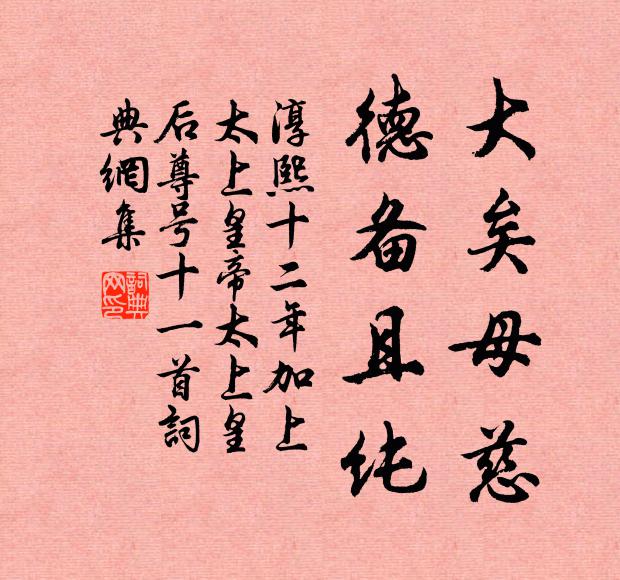 大矣母慈
德备且纯
淳熙十二年加上
太上皇帝太上皇
后尊号十一首詞
典網集
詞典
网印